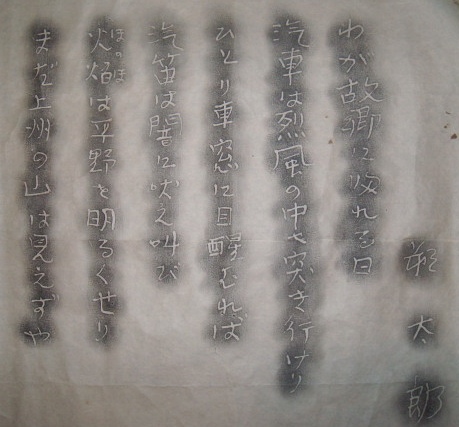 わが故郷に帰れる日
汽車は烈風の中を突き行けり
ひとり車窓に目醒むれば
汽笛は闇に吠え叫び
火焔(ほのほ)は平野を明るくせり
まだ上州の山は見えずや
朔太郎